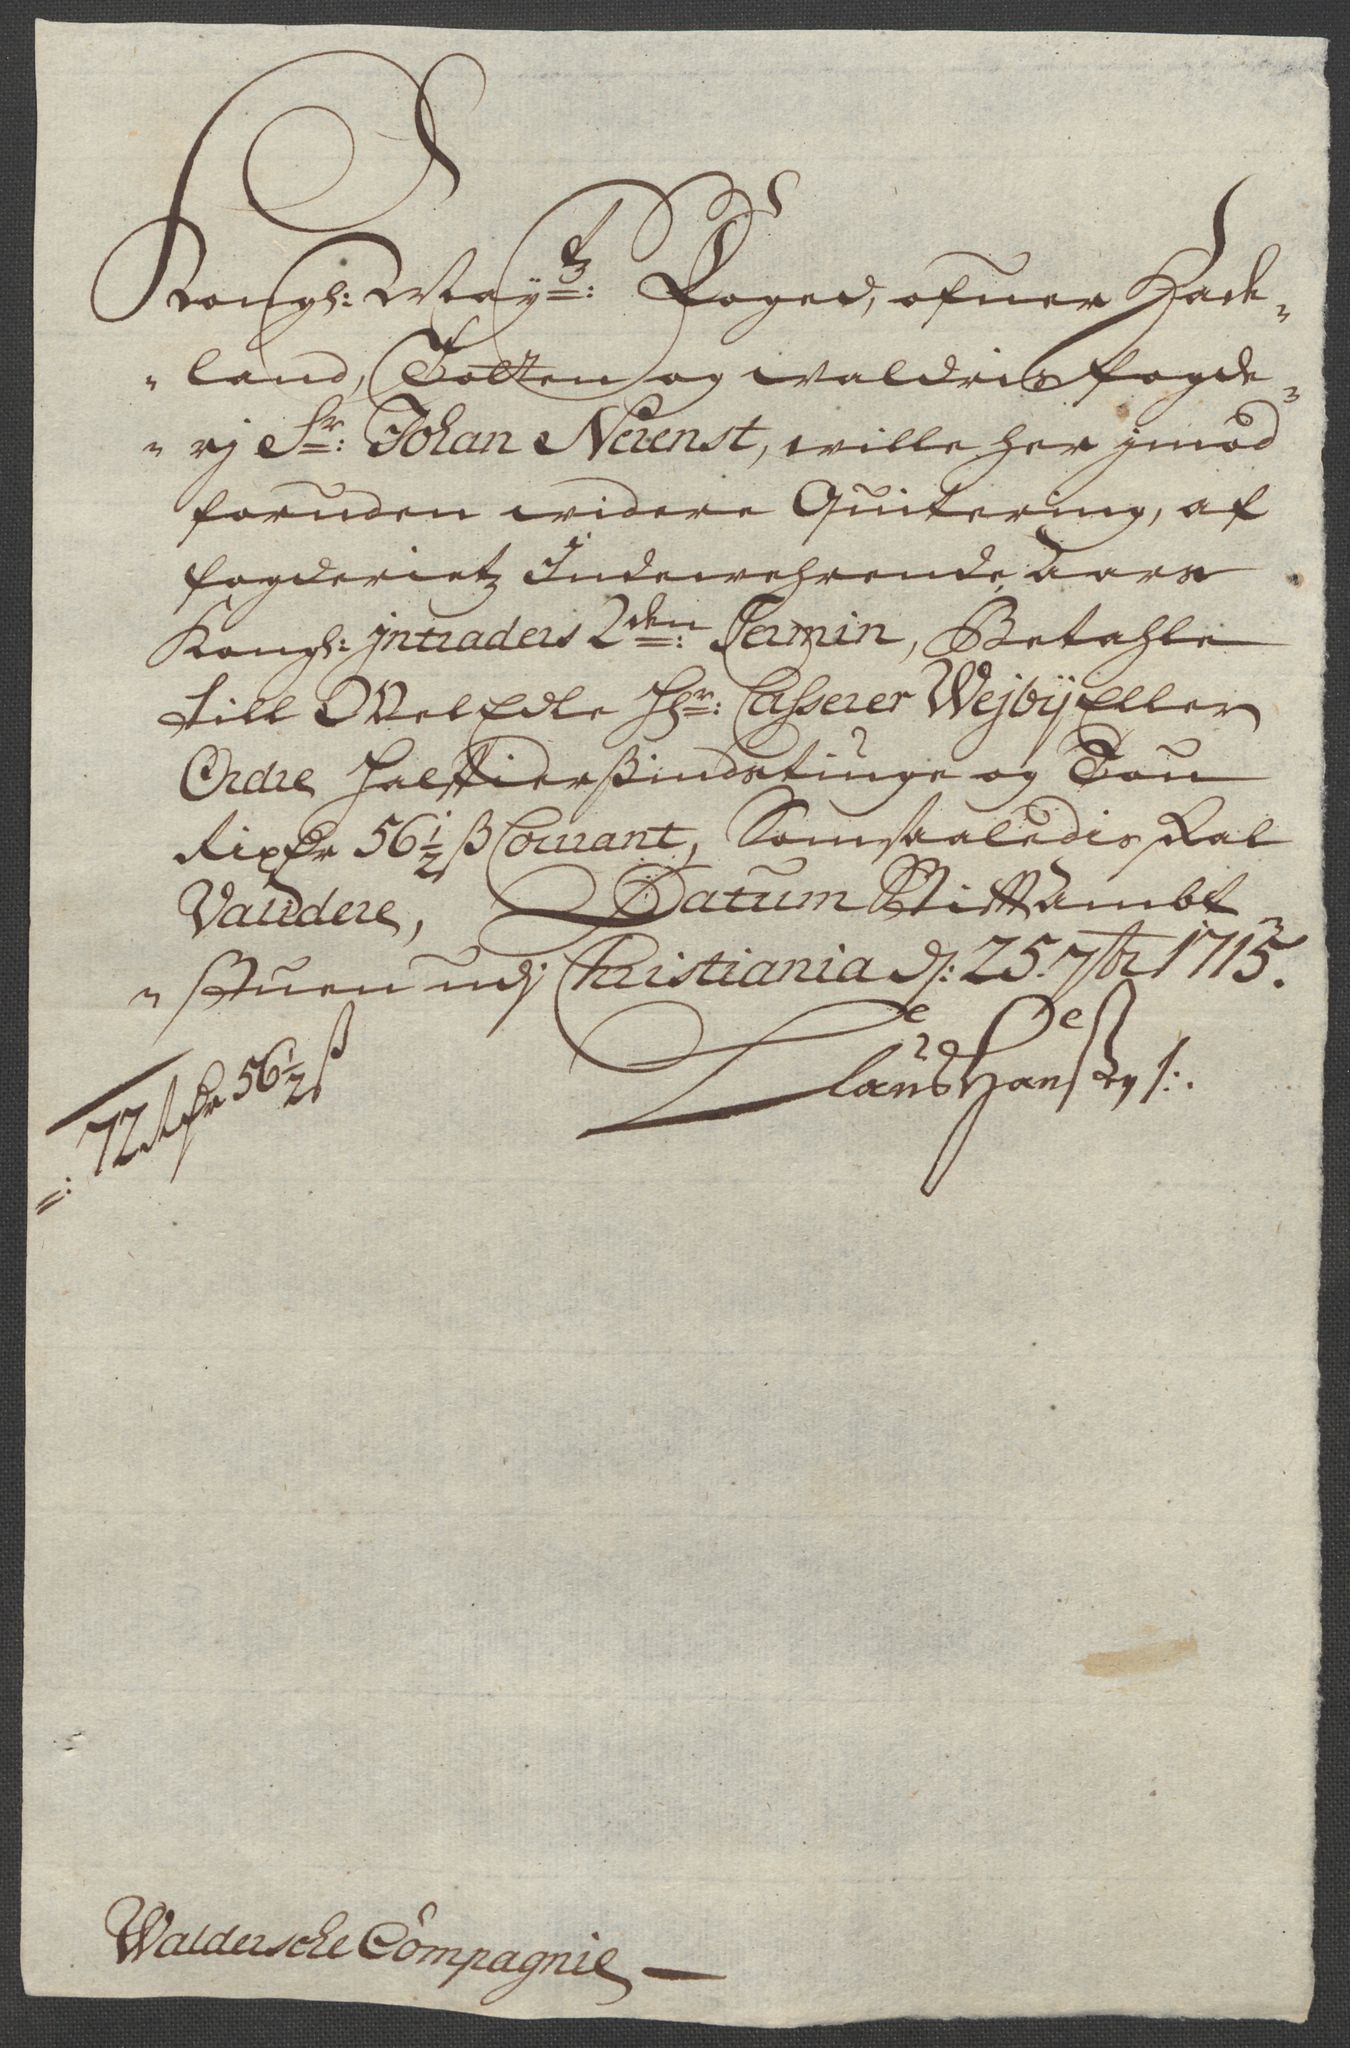 Kongl: May:tz Foged, ofuer Hade-
-land, Totten og Waldris fogde-
-rj Sr: Johan Neuenst, wille her jmod
foruden widere Quitering, af
fogderietz Indewehrende Aars
Kongl: jntraders 2den: Termin, Betahle
till WelEdle Hr: Casserer Wejbÿ Eller
Ordre halfierßindstiuge og Tou
Rixdr 56½ ß Courant, Som saaledis skal
Vaudere, Datum Stittambt
-stuen udj Christiania d: 25. 7br 1715.
Claus Hanß
=: 72 Rdr 56½ ß
Waldersche Compagnie